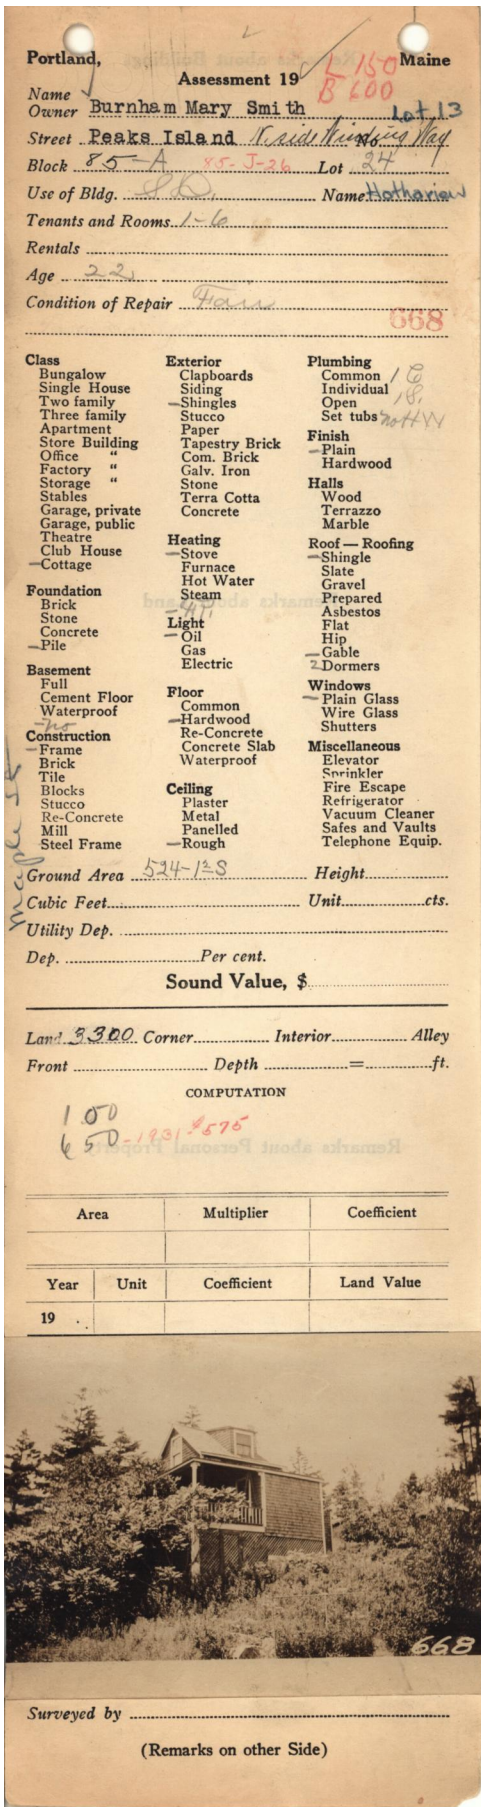 Portland, Maine
Assessment 19
L 150
B 600
Name
Owner Burnham Mary Smith Lot 13
Street Peaks Island N. side Winding Way No
Block 85-A 85-J-26 Lot 24
Use of Bldg. S.D. Name
Tenants and Rooms 1-6
Rentals
Age 22
Condition of Repair Fair
668
Class
Bungalow
Single House
Two family
Three family
Apartment
Store Building
Office "
Factory "
Storage "
Stables
Garage, private
Garage, public
Theatre
Club House
Cottage
Foundation
Brick
Stone
Concrete
Pile
Basement
Full
Cement Floor
Waterproof
no
Construction
Frame
Brick
Tile
Blocks
Stucco
Re-Concrete
Mill
Steel Frame
Exterior
Clapboards
Siding
Shingles
Stucco
Paper
Tapestry Brick
Com. Brick
Galv. Iron
Stone
Terra Cotta
Concrete
Heating
Stove
Furnace
Hot Water
Steam
Light
Oil
Gas
Electric
Floor
Common
Hardwood
Re-Concrete
Concrete Slab
Waterproof
Ceiling
Plaster
Metal
Panelled
Rough
Plumbing
Common 1 C
Individual
Open 1 S.
Set tubs no HW
Finish
Plain
Hardwood
Halls
Wood
Terrazzo
Marble
Roof — Roofing
Shingle
Slate
Gravel
Prepared
Asbestos
Flat
Hip
Gable
2 Dormers
Windows
Plain Glass
Wire Glass
Shutters
Miscellaneous
Elevator
Sprinkler
Fire Escape
Refrigerator
Vacuum Cleaner
Safes and Vaults
Telephone Equip.
Maple St
Ground Area 524-1½ S Height
Cubic Feet Unit cts.
Utility Dep.
Dep. Per cent.
Sound Value, $
Land 3300 Corner Interior Alley
Front Depth = ft.
COMPUTATION
100
650 - 1931 $575
Area Multiplier Coefficient
Year Unit Coefficient Land Value
19
668
Surveyed by
(Remarks on other Side)